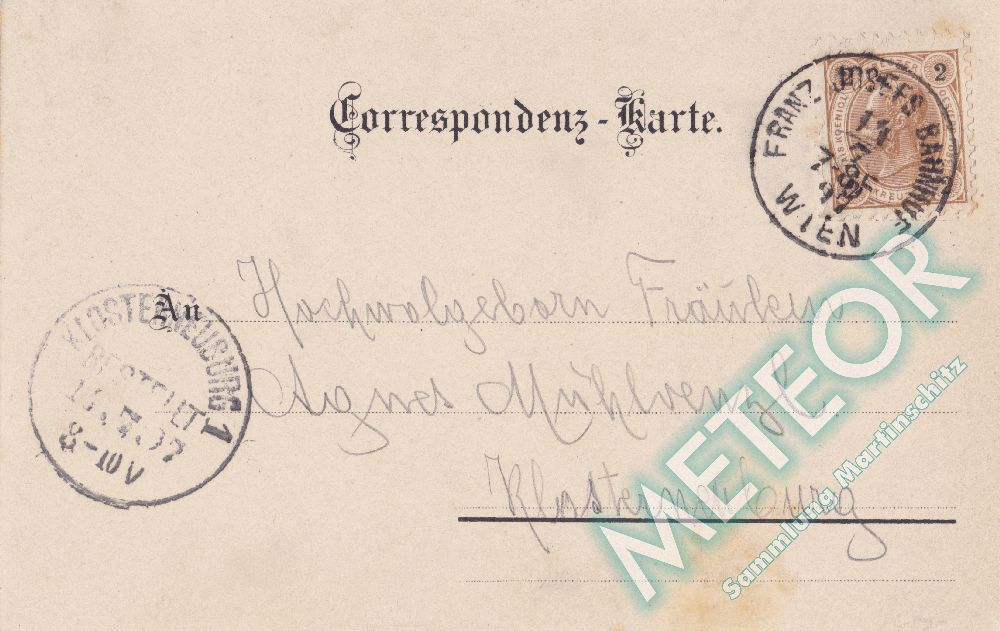 Correspondenz-Karte.
2
FRANZ JOSEFS BAHNHOF
WIEN
An Hochwolgeborn Fräulein
Agnes Mühlvenzl.
Klosterneuburg
KLOSTERNEUBURG 1
BESTELLT
8-10 V
METEOR
Sammlung Martinschitz